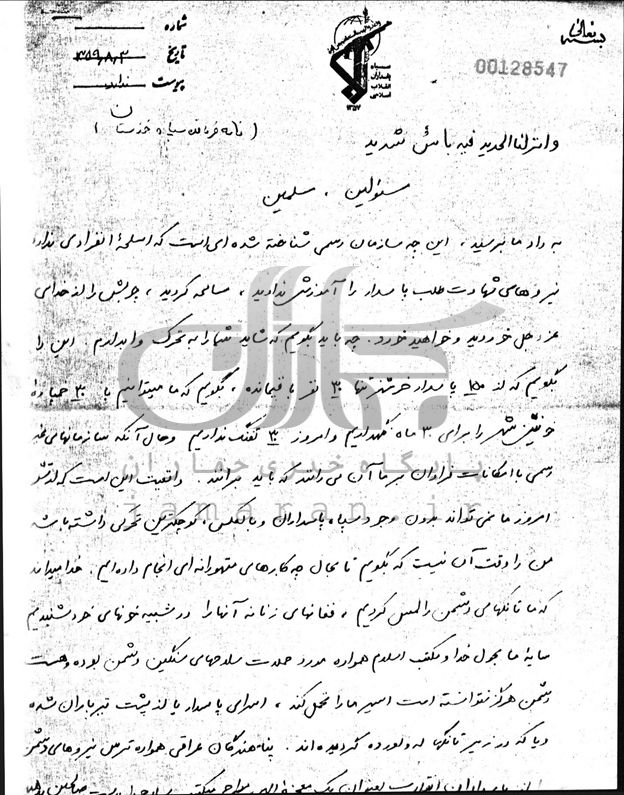 بسمه تعالی
شماره
تاریخ ۳۵۹/۸/۳
پیوست ندارد
سپاه
پاسداران
انقلاب
اسلامی
۱۳۵۷
00128547
(نامه فرمانده سپاه خوزستان)
و انزلنا الحدید فیه باس شدید
مسئولین ، مسلمین
به داد ما برسید ، این چه سازمان رسمی شناخته شده ای است که اسلحه انفرادی ندارد
نیروهای شهادت طلب پاسدار را آموزش ندادید ، مسامحه کردید ، چوبش را از خدای
عزوجل خوردید و خواهید خورد . چه باید بگویم که شاید شما را به تحرک وا بدارم این را
بگویم که از ۱۵۰ پاسدار خرمشهر تنها ۳۰ نفر باقیمانده ، بگویم که ما میتوانیم با ۳۰ خمپاره
خونین شهر را برای ۳ ماه نگهداریم و امروز ۳۰ تفنگ نداریم و حال آنکه سازمانهای غیر
رسمی با امکانات فراوان بر ما آن می رانند که باید برانند . واقعیت این است که ارتش
امروز ما نمی تواند بدون وجود سپاه پاسداران و بالعکس ، کوچکترین تحرکی داشته باشد
من را وقت آن نیست که بگویم تا بحال چه کارهای متهورانه ای انجام داده ایم . خدا میداند
که ما تانکهای دشمن را لمس کردیم ، فغانهای زنانه آنها را در شبیه خونهای خود شنیدیم
سایه ما بحول خدا و مکتب اسلام همواره مورد حملات سلاحهای سنگین دشمن بوده و هست
دشمن هرگز نتوانسته است اسیر ما را تحمل کند ، اسرای پاسدار یا از پشت تیرباران شده
و یا که در زیر تانکها له و لورده گردیده اند . پناهندگان عراقی همواره ترس نیروهای دشمن
را از پاسداران انقلاب بعنوان یک معجزه الهی
جماران
پایگاه خبری جماران
jamaran.ir